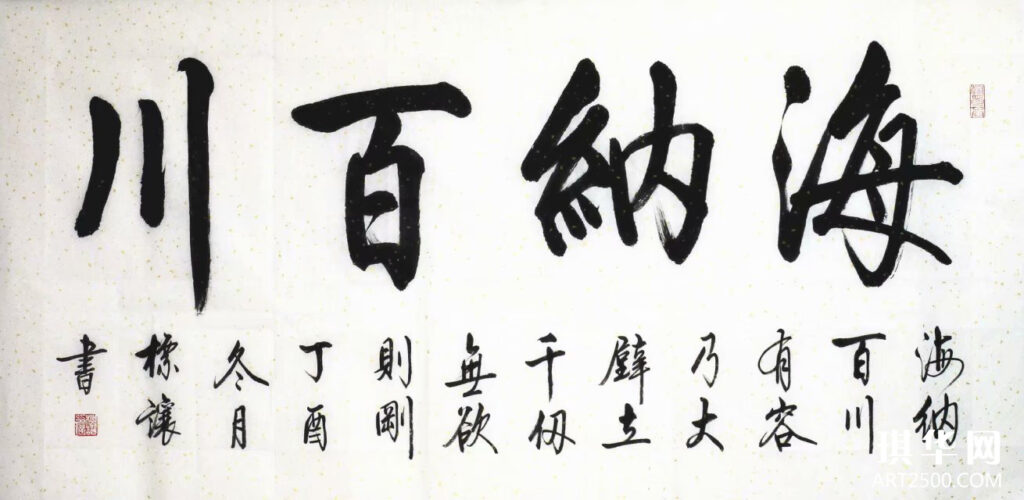 海納百川
海納
百川
有容
乃大
壁立
千仭
無欲
則剛
丁酉
冬月
標讓
書
ART2500.COM